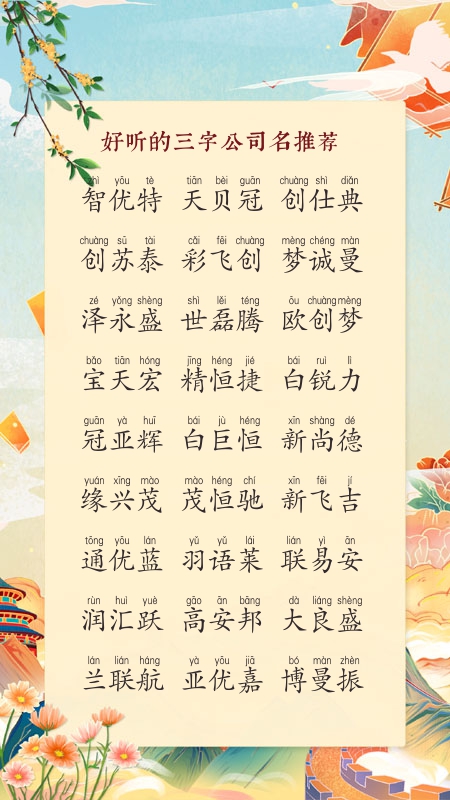 好听的三字公司名推荐
zhì yōu tè tiān bèi guān chuàng shì diǎn
智优特 天贝冠 创仕典
chuàng sū tài cǎi fēi chuàng mèng chéng màn
创苏泰 彩飞创 梦诚曼
zé yǒng shèng shì lěi téng ōu chuàng mèng
泽永盛 世磊腾 欧创梦
bǎo tiān hóng jīng héng jié bái ruì lì
宝天宏 精恒捷 白锐力
guān yà huī bái jù héng xīn shàng dé
冠亚辉 白巨恒 新尚德
yuán xīng mào mào héng chí xīn fēi jí
缘兴茂 茂恒驰 新飞吉
tōng yōu lán yǔ yǔ lái lián yì ān
通优蓝 羽语莱 联易安
rùn huì yuè gāo ān bāng dà liáng shèng
润汇跃 高安邦 大良盛
lán lián háng yà yōu jiā bó màn zhèn
兰联航 亚优嘉 博曼振